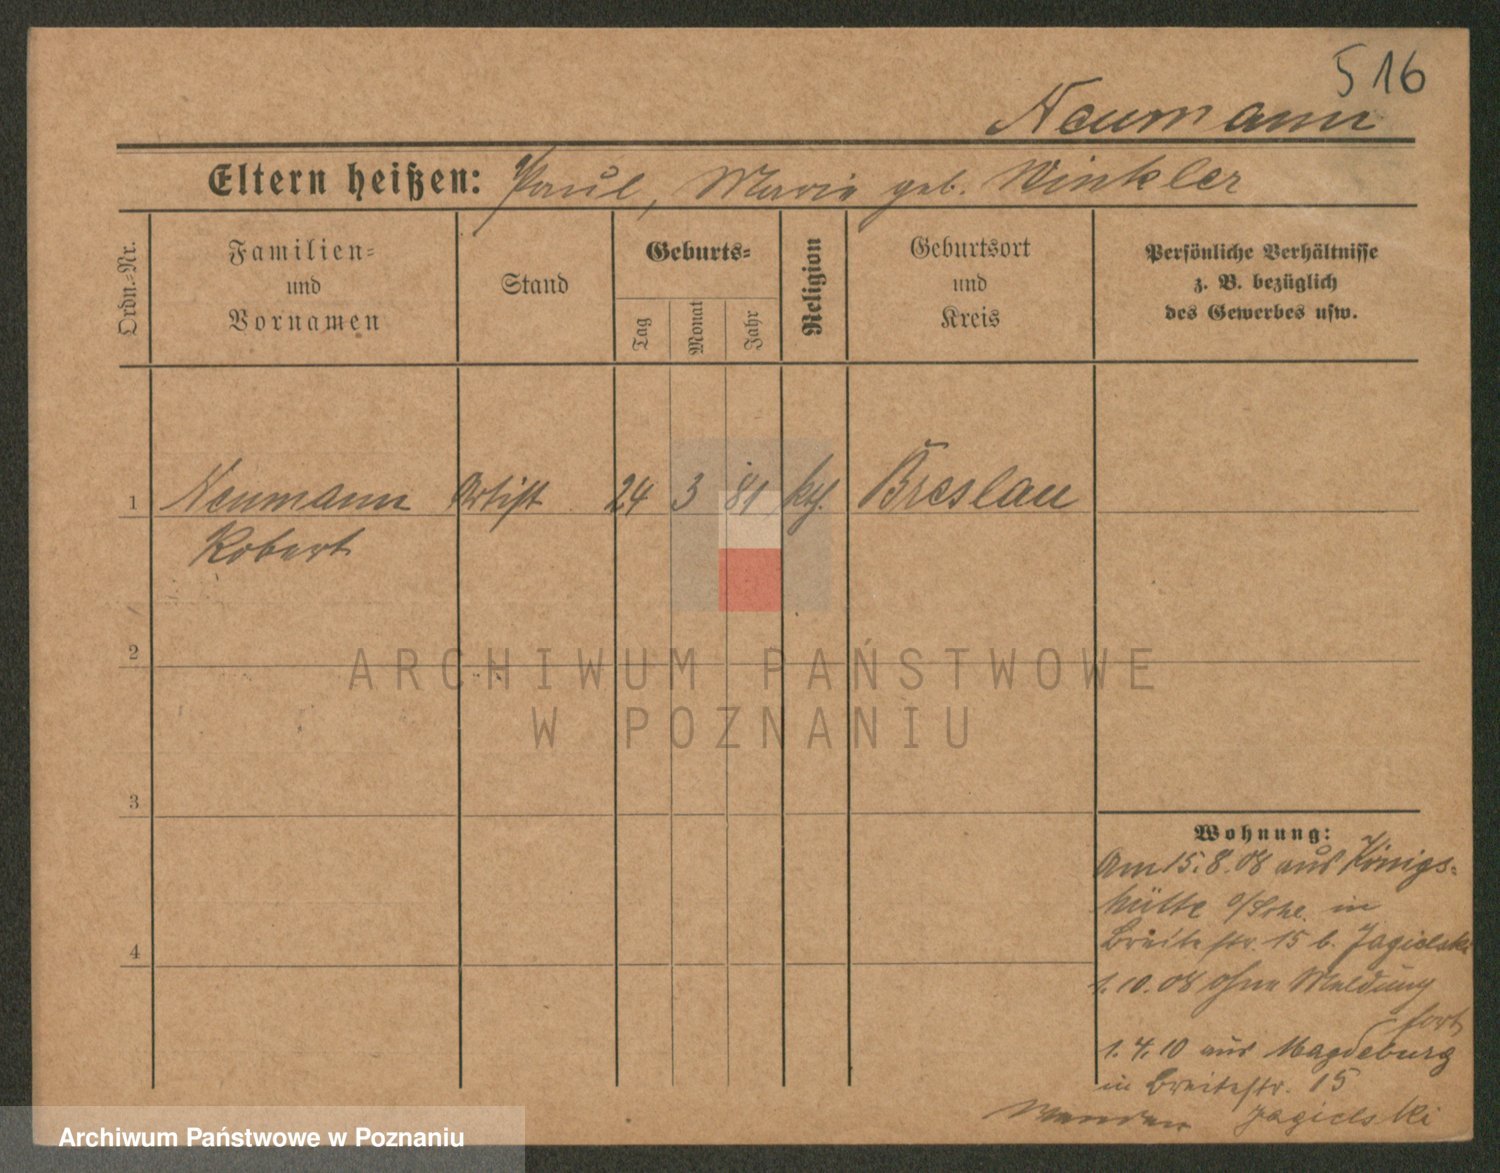 516
Neumann
Eltern heißen: Paul, Marie geb. Winkler
Ordn.-Nr.
Familien-
und
Vornamen
Stand
Geburts-
Tag
Monat
Jahr
Religion
Geburtsort
und
Kreis
Persönliche Verhältnisse
z. B. bezüglich
des Gewerbes usw.
1 Neumann Artist 24 3 81 kth. Breslau
Robert
2
ARCHIWUM PAŃSTWOWE
W POZNANIU
3
4
Wohnung:
Am 15.8.08 aus Königs-
hütte o/Schl. in
Breitestr. 15 b. Jagielski
1.10.08 ohne Meldung
fort
1.4.10 aus Magdeburg
in Breitestr. 15
Wenden Jagielski
Archiwum Państwowe w Poznaniu